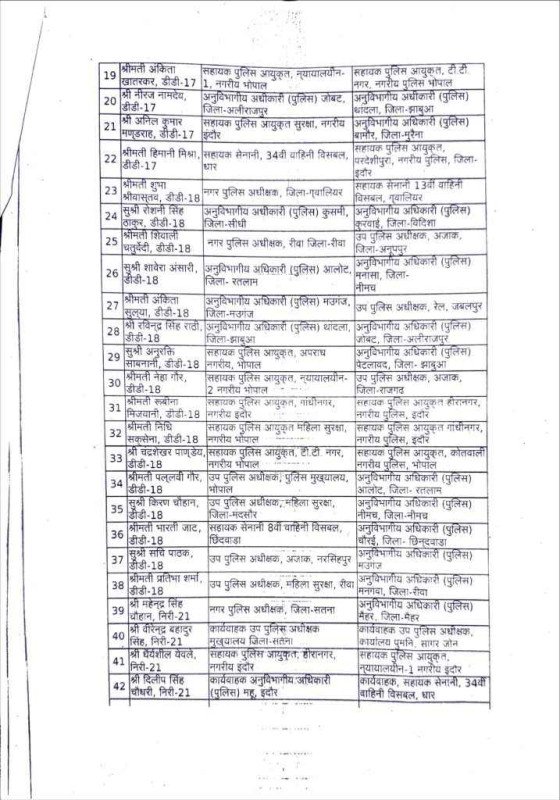 19 श्रीमती अंकिता खातरकर, डीडी-17 सहायक पुलिस आयुक्त, न्यायालयीन-1, नगरीय भोपाल सहायक पुलिस आयुक्त, टी.टी. नगर, नगरीय पुलिस भोपाल
20 श्री नीरज नामदेव, डीडी-17 अनुविभागीय अधीकारी (पुलिस) जोबट, जिला-अलीराजपुर अनुविभागीय अधीकारी (पुलिस) थांदला, जिला-झाबुआ
21 श्री अनिल कुमार मण्डराह, डीडी-17 सहायक पुलिस आयुक्त सुरक्षा, नगरीय इंदौर अनुविभागीय अधिकारी (पुलिस) बामौर, जिला-मुरैना
22 श्रीमती हिमानी मिश्रा, डीडी-17 सहायक सेनानी, 34वीं वाहिनी विसबल, धार सहायक पुलिस आयुक्त, परदेशीपुरा, नगरीय पुलिस, जिला-इंदौर
23 श्रीमती शुभा श्रीवास्तव, डीडी-18 नगर पुलिस अधीक्षक, जिला-ग्वालियर सहायक सेनानी 13वीं वाहिनी विसबल, ग्वालियर
24 सुश्री रोशनी सिंह ठाकुर, डीडी-18 अनुविभागीय अधीकारी (पुलिस) कुसमी, जिला-सीधी अनुविभागीय अधिकारी (पुलिस) कुरवाई, जिला-विदिशा
25 श्रीमती शिवाली चतुर्वेदी, डीडी-18 नगर पुलिस अधीक्षक, रीवा जिला-रीवा उप पुलिस अधीक्षक, अजाक, जिला-अनूपपुर
26 सुश्री शावेरा अंसारी, डीडी-18 अनुविभागीय अधिकारी (पुलिस) आलोट, जिला- रतलाम अनुविभागीय अधिकारी (पुलिस) मनासा, जिला-नीमच
27 श्रीमती अंकिता सुल्या, डीडी-18 अनुविभागीय अधिकारी (पुलिस) मउगंज, जिला-मउगंज उप पुलिस अधीक्षक, रेल, जबलपुर
28 श्री रविन्द्र सिंह राठी, डीडी-18 अनुविभागीय अधिकारी (पुलिस) थांदला, जिला-झाबुआ अनुविभागीय अधिकारी (पुलिस) जोबट, जिला-अलीराजपुर
29 सुश्री अनुरक्ति साबनानी, डीडी-18 सहायक पुलिस आयुक्त, अपराध नगरीय, भोपाल अनुविभागीय अधिकारी (पुलिस) पेटलावद, जिला- झाबुआ
30 श्रीमती नेहा गौर, डीडी-18 सहायक पुलिस आयुक्त, न्यायालयीन-2 नगरीय भोपाल उप पुलिस अधीक्षक, अजाक, जिला-राजगढ़
31 श्रीमती रूबीना मिजवानी, डीडी-18 सहायक पुलिस आयुक्त, गांधीनगर, नगरीय इंदौर सहायक पुलिस आयुक्त हीरानगर, नगरीय पुलिस, इंदौर
32 श्रीमती निधि सक्सेना, डीडी-18 सहायक पुलिस आयुक्त महिला सुरक्षा, नगरीय भोपाल सहायक पुलिस आयुक्त गांधीनगर, नगरीय पुलिस, इंदौर
33 श्री चंद्रशेखर पाण्डेय, डीडी-18 सहायक पुलिस आयुक्त, टी.टी. नगर, नगरीय भोपाल सहायक पुलिस आयुक्त, कोतवाली नगरीय पुलिस, भोपाल
34 श्रीमती पल्लवी गौर, डीडी-18 उप पुलिस अधीक्षक, पुलिस मुख्यालय, भोपाल अनुविभागीय अधिकारी (पुलिस) आलोट, जिला- रतलाम
35 सुश्री किरण चौहान, डीडी-18 उप पुलिस अधीक्षक, महिला सुरक्षा, जिला-मंदसौर अनुविभागीय अधिकारी (पुलिस) नीमच, जिला-नीमच
36 श्रीमती भारती जाट, डीडी-18 सहायक सेनानी 8वीं वाहिनी विसबल, छिंदवाड़ा अनुविभागीय अधिकारी (पुलिस) चौरई, जिला- छिन्दवाड़ा
37 सुश्री सचि पाठक, डीडी-18 उप पुलिस अधीक्षक, अजाक, नरसिंहपुर अनुविभागीय अधिकारी (पुलिस) मउगंज
38 श्रीमती प्रतिभा शर्मा, डीडी-18 उप पुलिस अधीक्षक, महिला सुरक्षा, रीवा अनुविभागीय अधिकारी (पुलिस) मनगवा, जिला-रीवा
39 श्री महेन्द्र सिंह चौहान, निरी-21 नगर पुलिस अधीक्षक, जिला-सतना अनुविभागीय अधिकारी (पुलिस) मैहर, जिला-मैहर
40 श्री वीरेन्द्र बहादुर सिंह, निरी-21 कार्यवाहक उप पुलिस अधीक्षक मुख्यालय जिला-सतना कार्यवाहक उप पुलिस अधीक्षक, कार्यालय पुमनि, सागर जोन
41 श्री धैर्यशील येवले, निरी-21 सहायक पुलिस आयुक्त, हीरानगर, नगरीय इंदौर सहायक पुलिस आयुक्त, न्यायालयीन-1 नगरीय इंदौर
42 श्री दिलीप सिंह चौधरी, निरी-21 कार्यवाहक अनुविभागीय अधिकारी (पुलिस) महू, इंदौर कार्यवाहक, सहायक सेनानी, 34वीं वाहिनी विसबल, धार